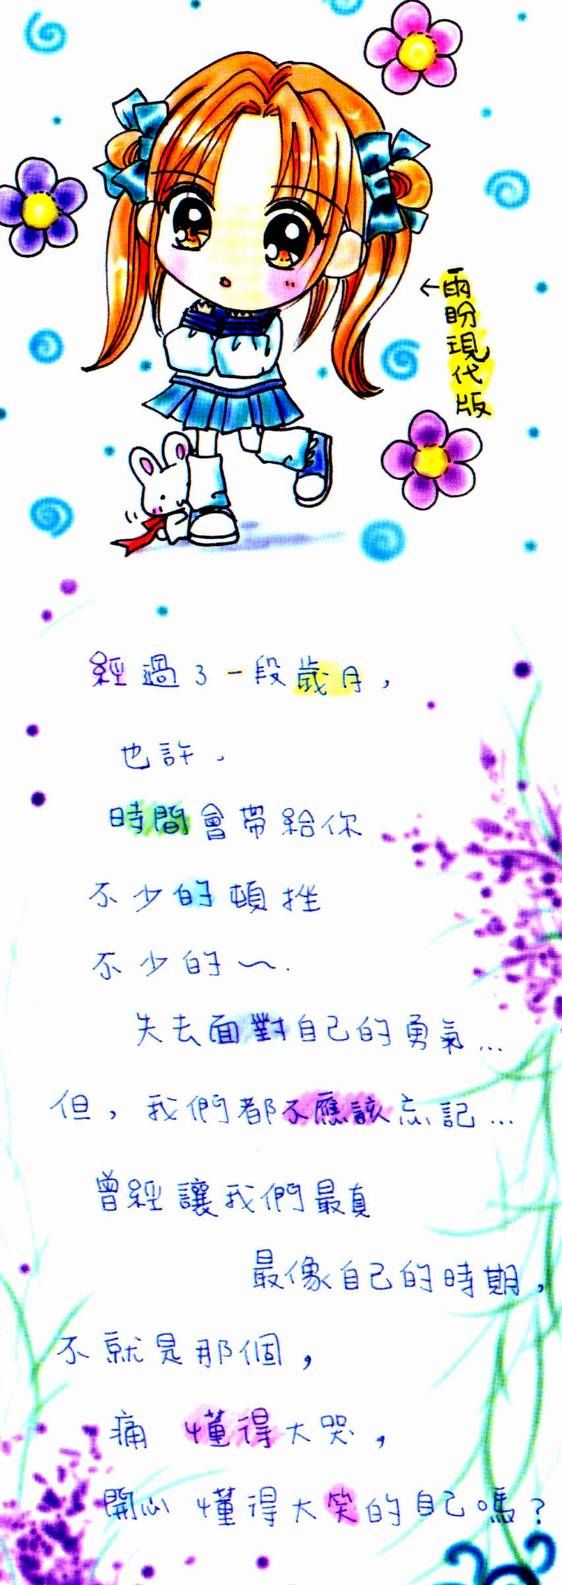 ←雨盼現代版
經過了一段歲月，
也許，
時間會帶給你
不少的頓挫
不少的～.
失去面對自己的勇氣...
但，我們都不應該忘記...
曾經讓我們最真
最像自己的時期，
不就是那個，
痛 懂得大哭，
開心 懂得大笑的自己嗎？